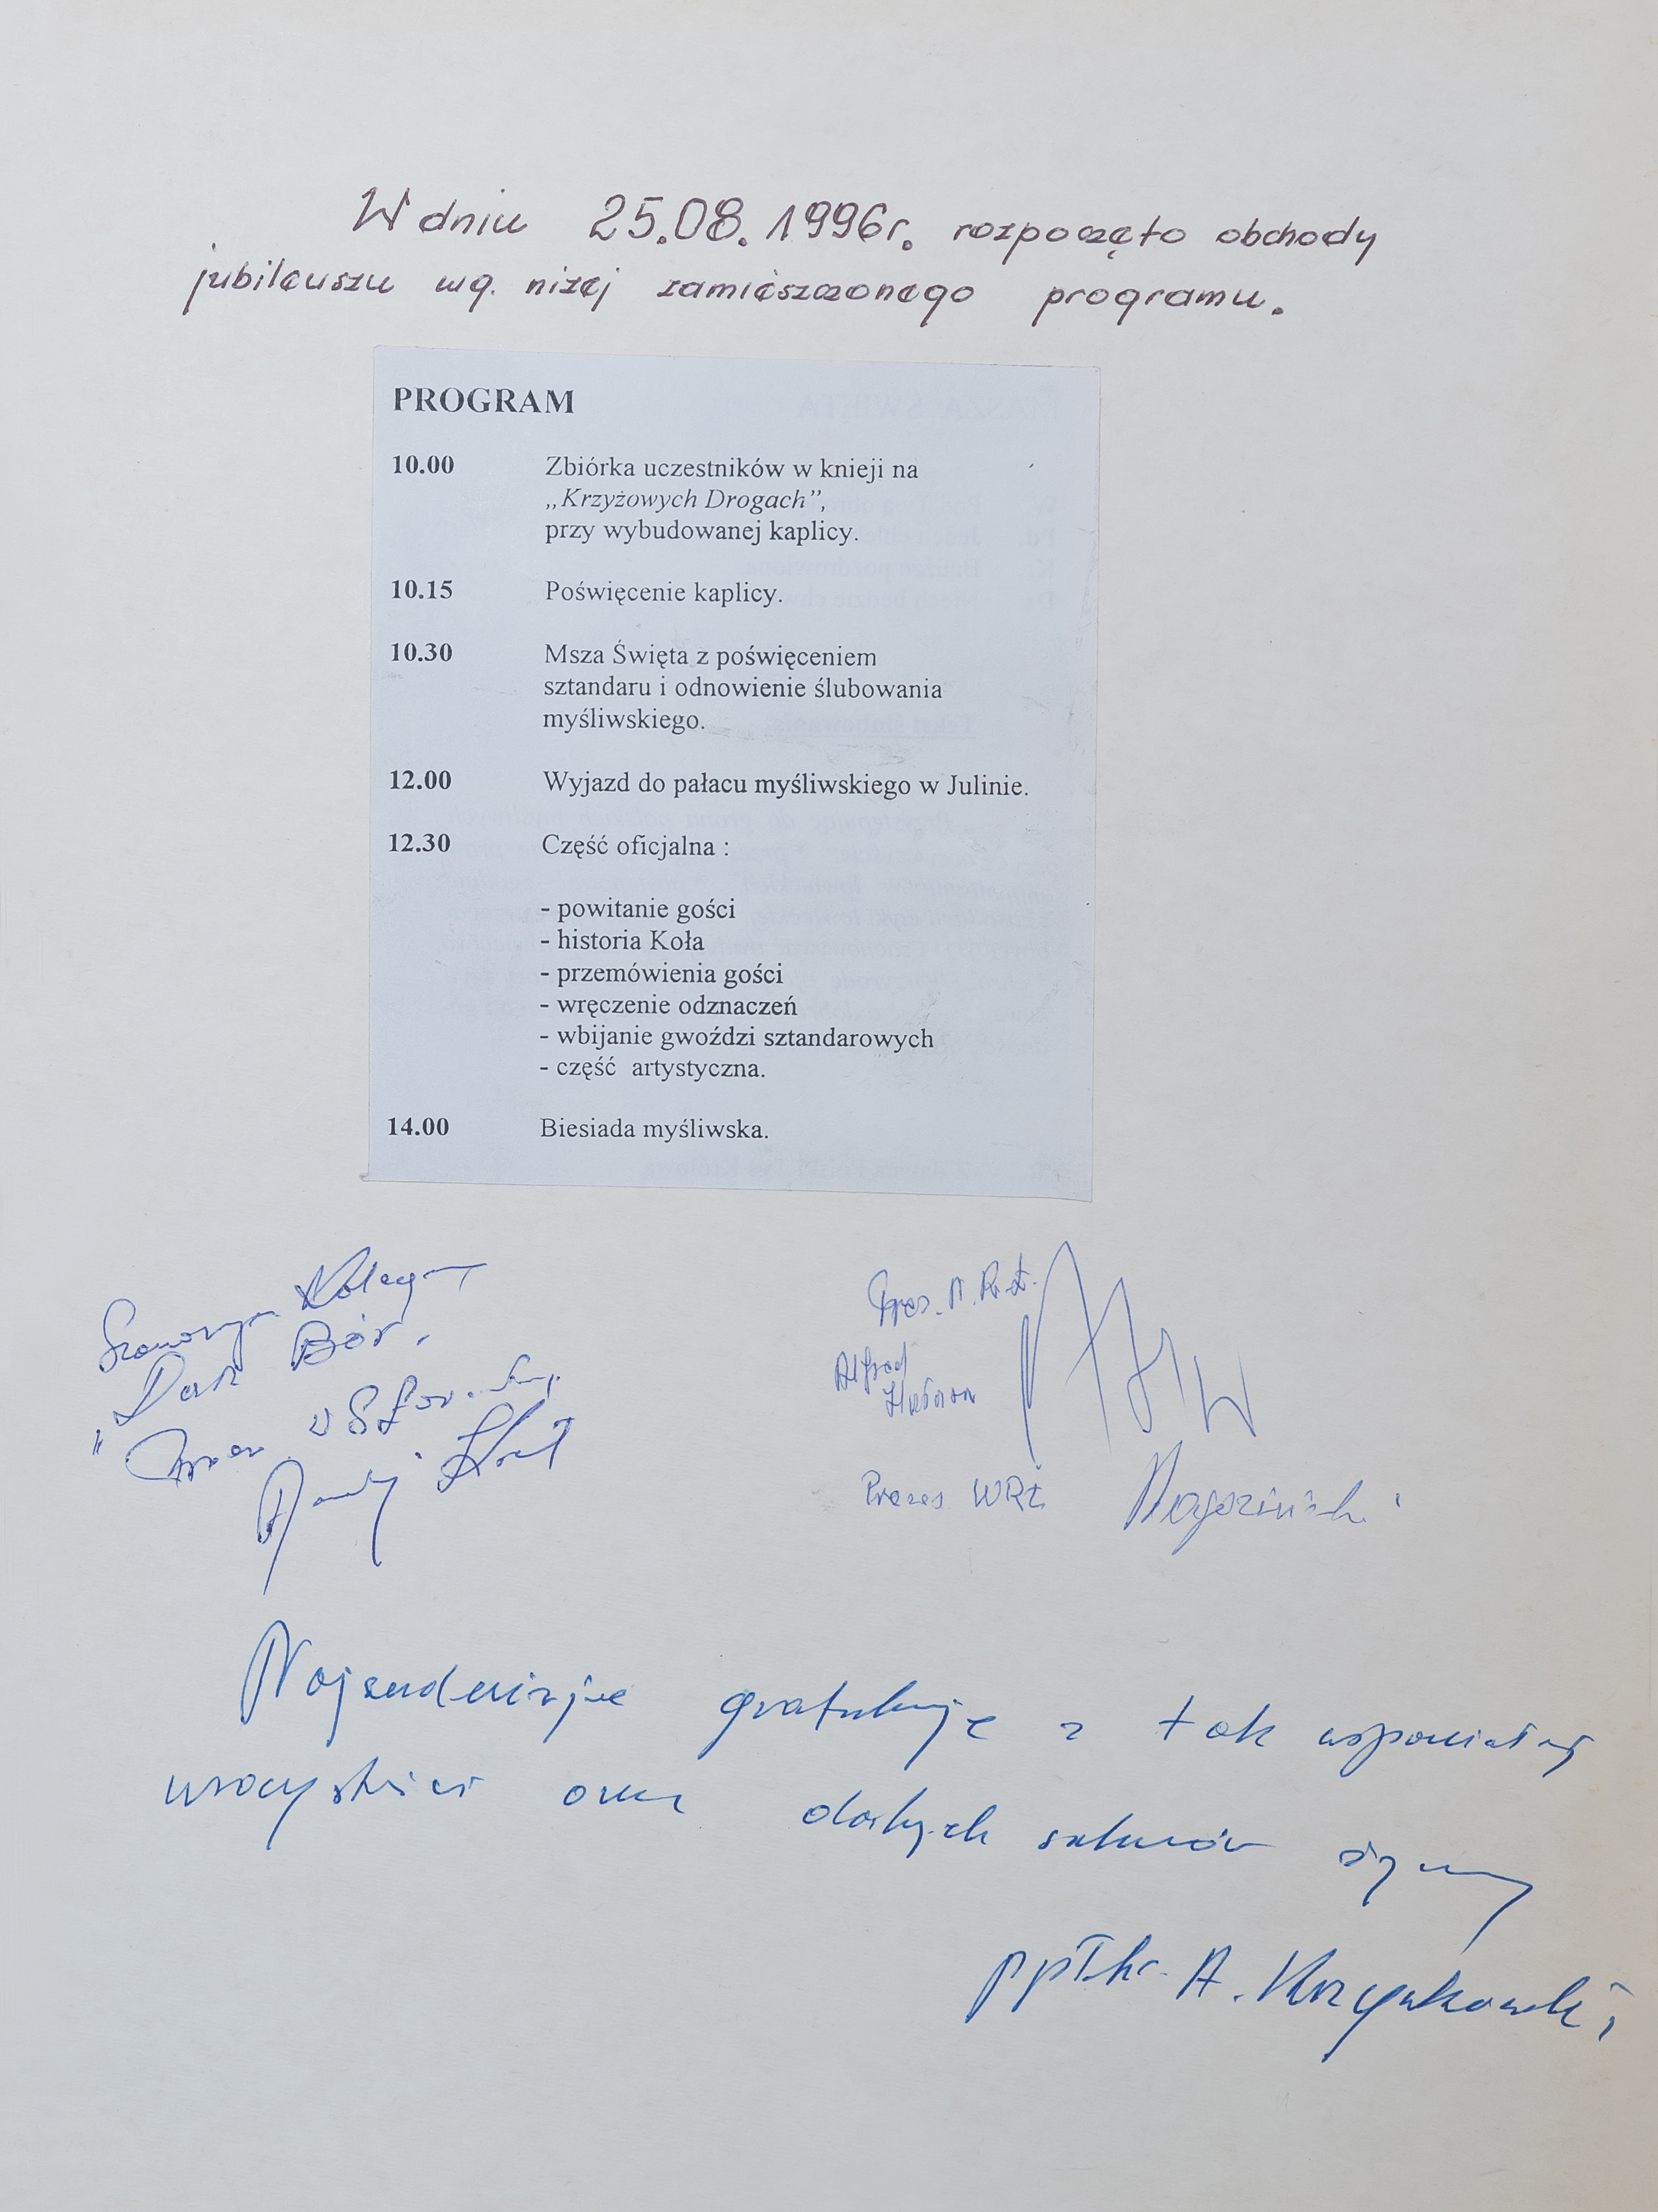 W dniu 25.08.1996r. rozpoczęto obchody
jubileuszu wg. niżej zamieszczonego programu.
PROGRAM
10.00 Zbiórka uczestników w knieji na
„Krzyżowych Drogach”,
przy wybudowanej kaplicy.
10.15 Poświęcenie kaplicy.
10.30 Msza Święta z poświęceniem
sztandaru i odnowienie ślubowania
myśliwskiego.
12.00 Wyjazd do pałacu myśliwskiego w Julinie.
12.30 Część oficjalna :
- powitanie gości
- historia Koła
- przemówienia gości
- wręczenie odznaczeń
- wbijanie gwoździ sztandarowych
- część artystyczna.
14.00 Biesiada myśliwska.
Szanownym Kolegom
Darz Bór.
Alfred
Prezes WRŁ
Najserdeczniejsze gratulacje z tak wspaniałej
uroczystości oraz dalszych sukcesów życzy
ppłk. A. Krzy